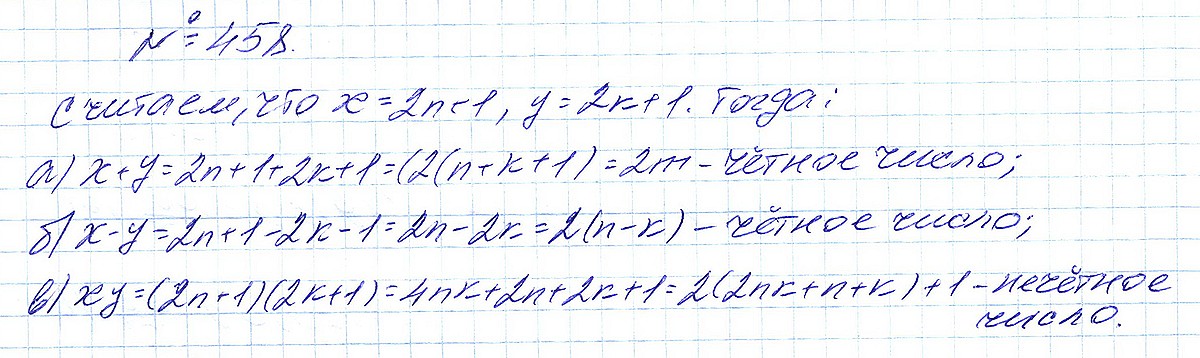 № 458.
Считаем, что x = 2n+1, y = 2k+1. Тогда:
а) x+y = 2n+1+2k+1 = (2(n+k+1) = 2m – чётное число;
б) x-y = 2n+1-2k-1 = 2n-2k = 2(n-k) – чётное число;
в) xy = (2n+1)(2k+1) = 4nk+2n+2k+1 = 2(2nk+n+k)+1 – нечётное
число.